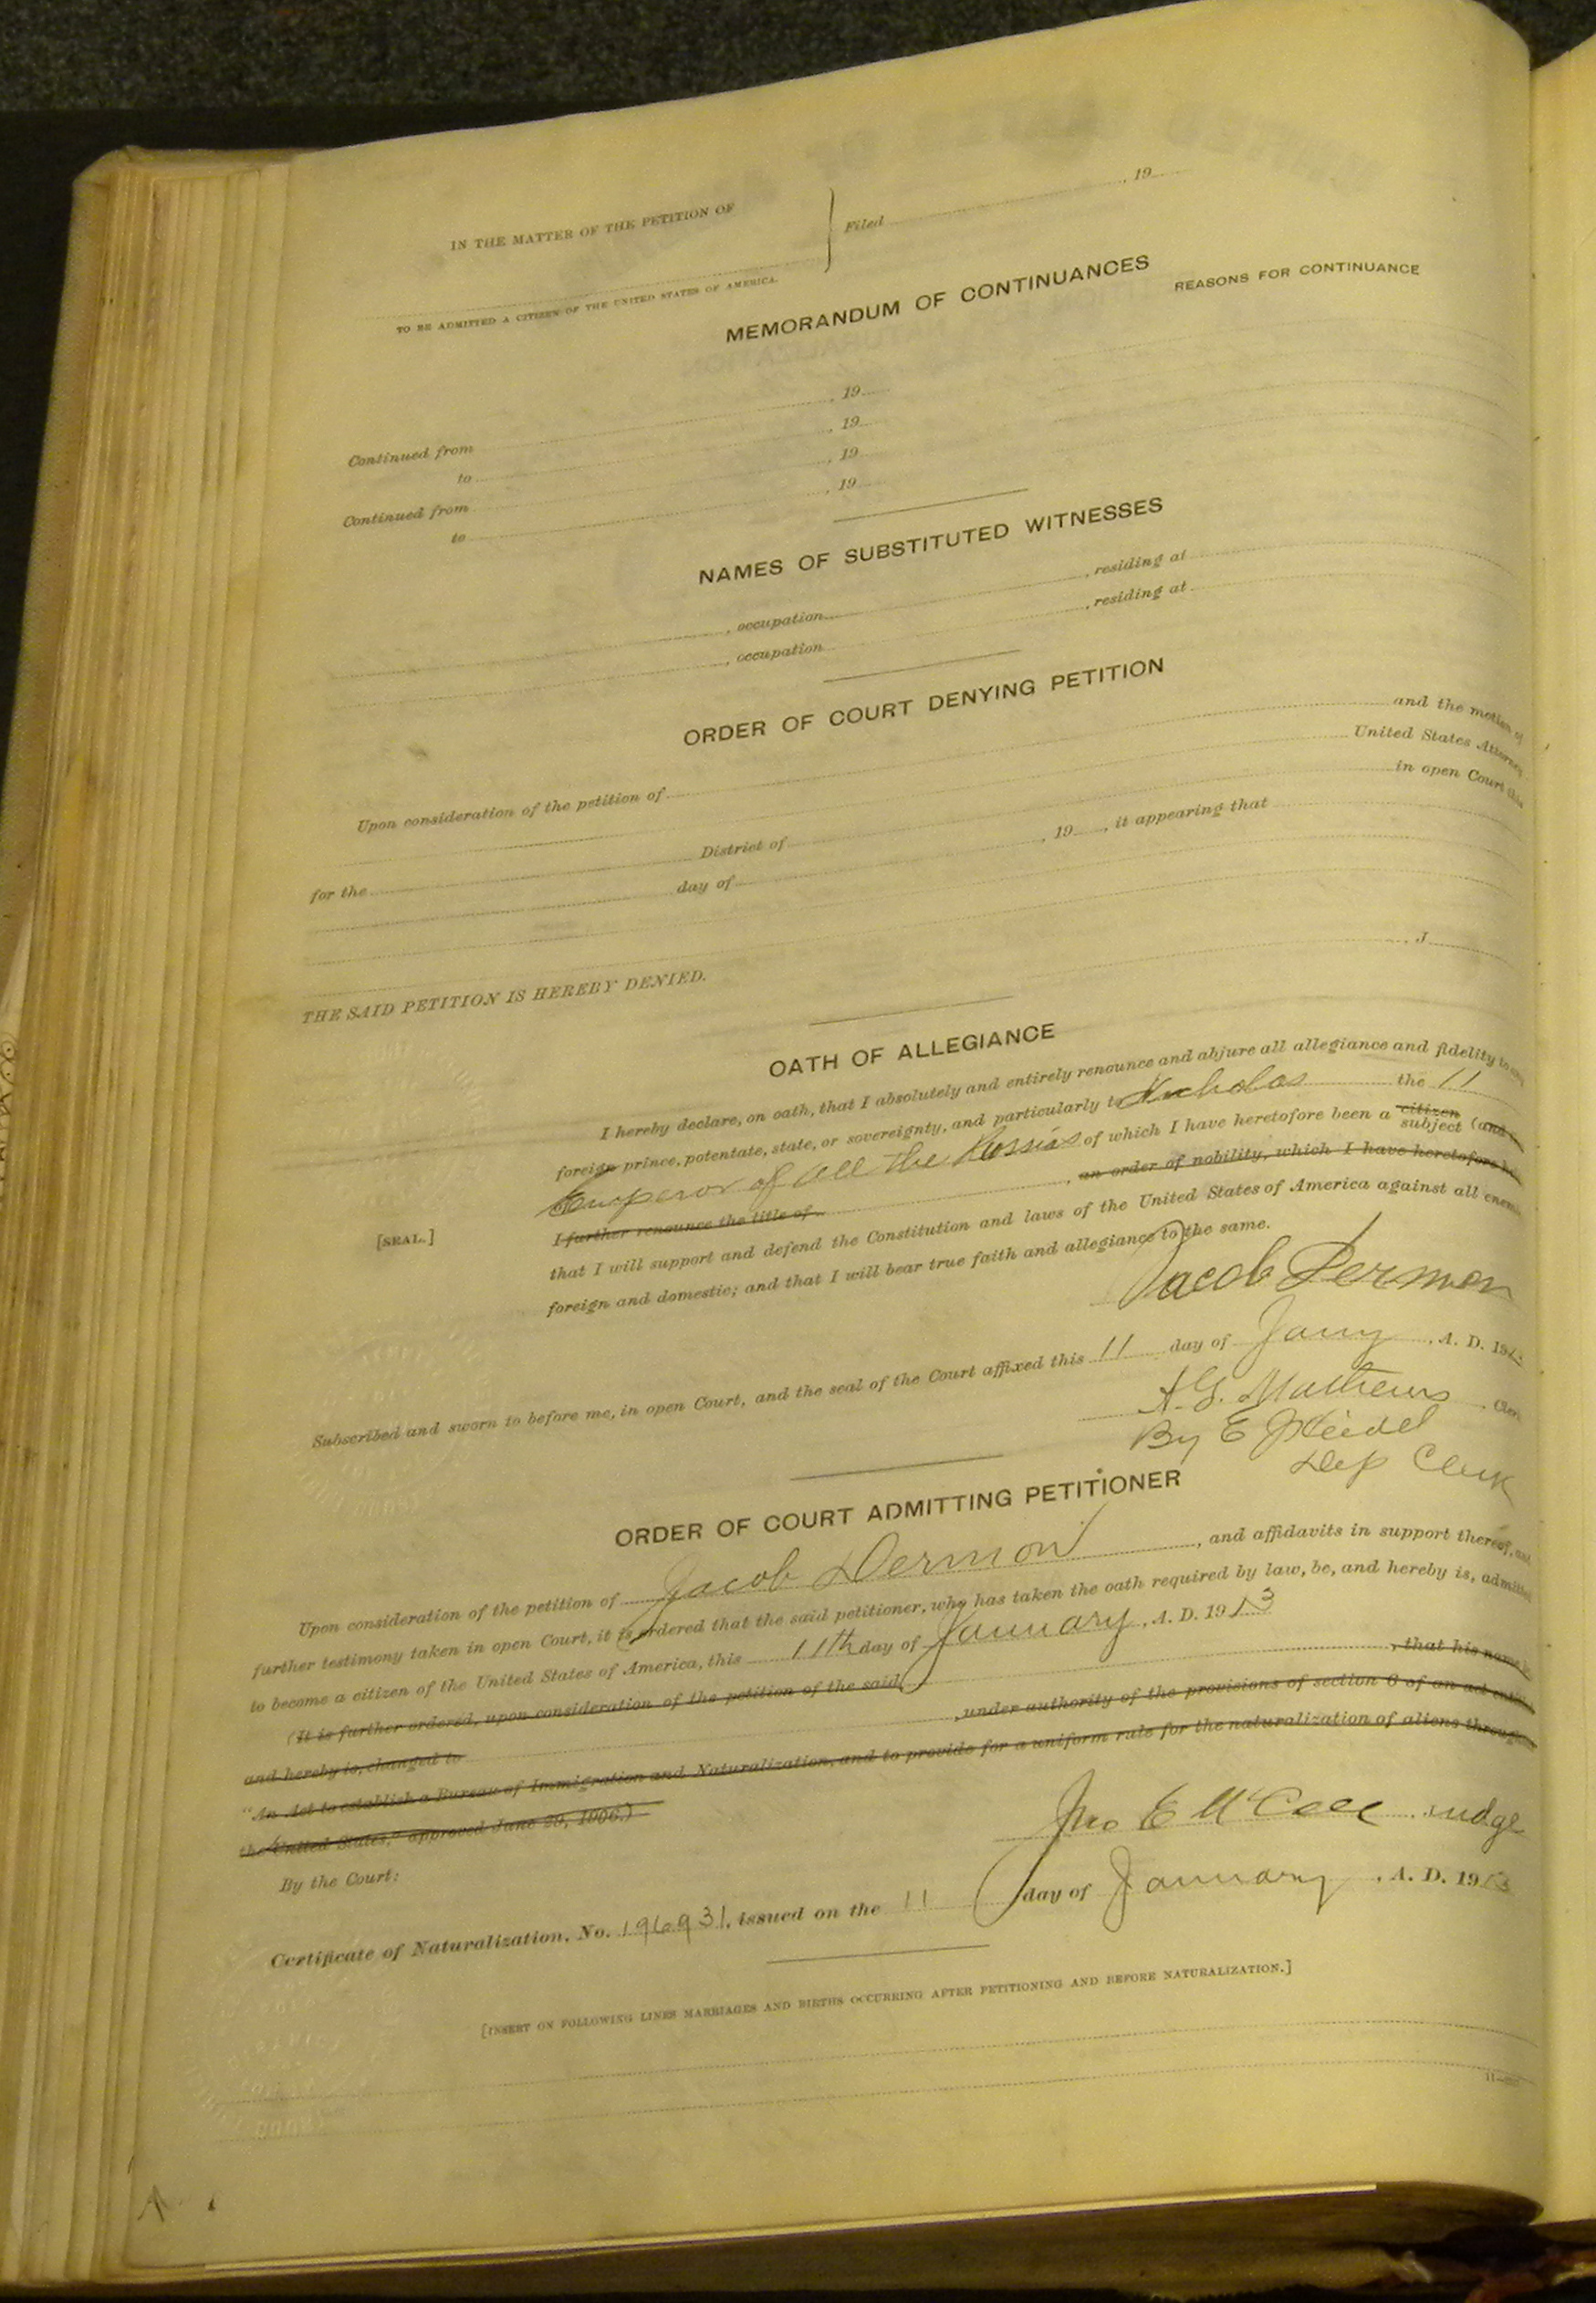 IN THE MATTER OF THE PETITION OF
Filed , 19
TO BE ADMITTED A CITIZEN OF THE UNITED STATES OF AMERICA.
MEMORANDUM OF CONTINUANCES
REASONS FOR CONTINUANCE
Continued from , 19
to , 19
Continued from , 19
to , 19
NAMES OF SUBSTITUTED WITNESSES
, occupation , residing at
, occupation , residing at
ORDER OF COURT DENYING PETITION
Upon consideration of the petition of and the motion of
United States Attorney
for the District of in open Court this
day of , 19 , it appearing that
THE SAID PETITION IS HEREBY DENIED.
, J
OATH OF ALLEGIANCE
I hereby declare, on oath, that I absolutely and entirely renounce and abjure all allegiance and fidelity to
foreign prince, potentate, state, or sovereignty, and particularly to Nicholas the 11
Emperor of all the Russias of which I have heretofore been a citizen subject (and
I further renounce the title of , an order of nobility, which I have heretofore
that I will support and defend the Constitution and laws of the United States of America against all
foreign and domestic; and that I will bear true faith and allegiance to the same.
[SEAL.]
Jacob Dermon
Subscribed and sworn to before me, in open Court, and the seal of the Court affixed this 11 day of Jany , A. D. 1913
A. G. Mathews
By E Heidel
Dep Clerk
ORDER OF COURT ADMITTING PETITIONER
Upon consideration of the petition of Jacob Dermon , and affidavits in support thereof,
further testimony taken in open Court, it is ordered that the said petitioner, who has taken the oath required by law, be, and hereby is, admitted
to become a citizen of the United States of America, this 11th day of January , A. D. 1913
(It is further ordered, upon consideration of the petition of the said , that his name
and hereby is, changed to , under authority of the provisions of section 6 of an act
"An Act to establish a Bureau of Immigration and Naturalization, and to provide for a uniform rule for the naturalization of aliens
the United States," approved June 29, 1906.)
By the Court:
Jno E McCall Judge
Certificate of Naturalization, No. 196931, issued on the 11 day of January , A. D. 1913
[INSERT ON FOLLOWING LINES MARRIAGES AND BIRTHS OCCURRING AFTER PETITIONING AND BEFORE NATURALIZATION.]